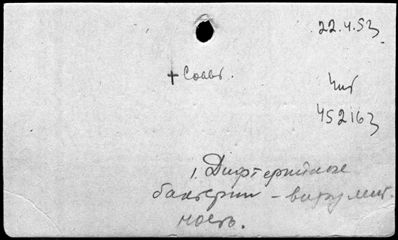 22.4.53
+ Соавт.
Чит
452163
1. Дифтерийные
бактерии – вирулент
ность.